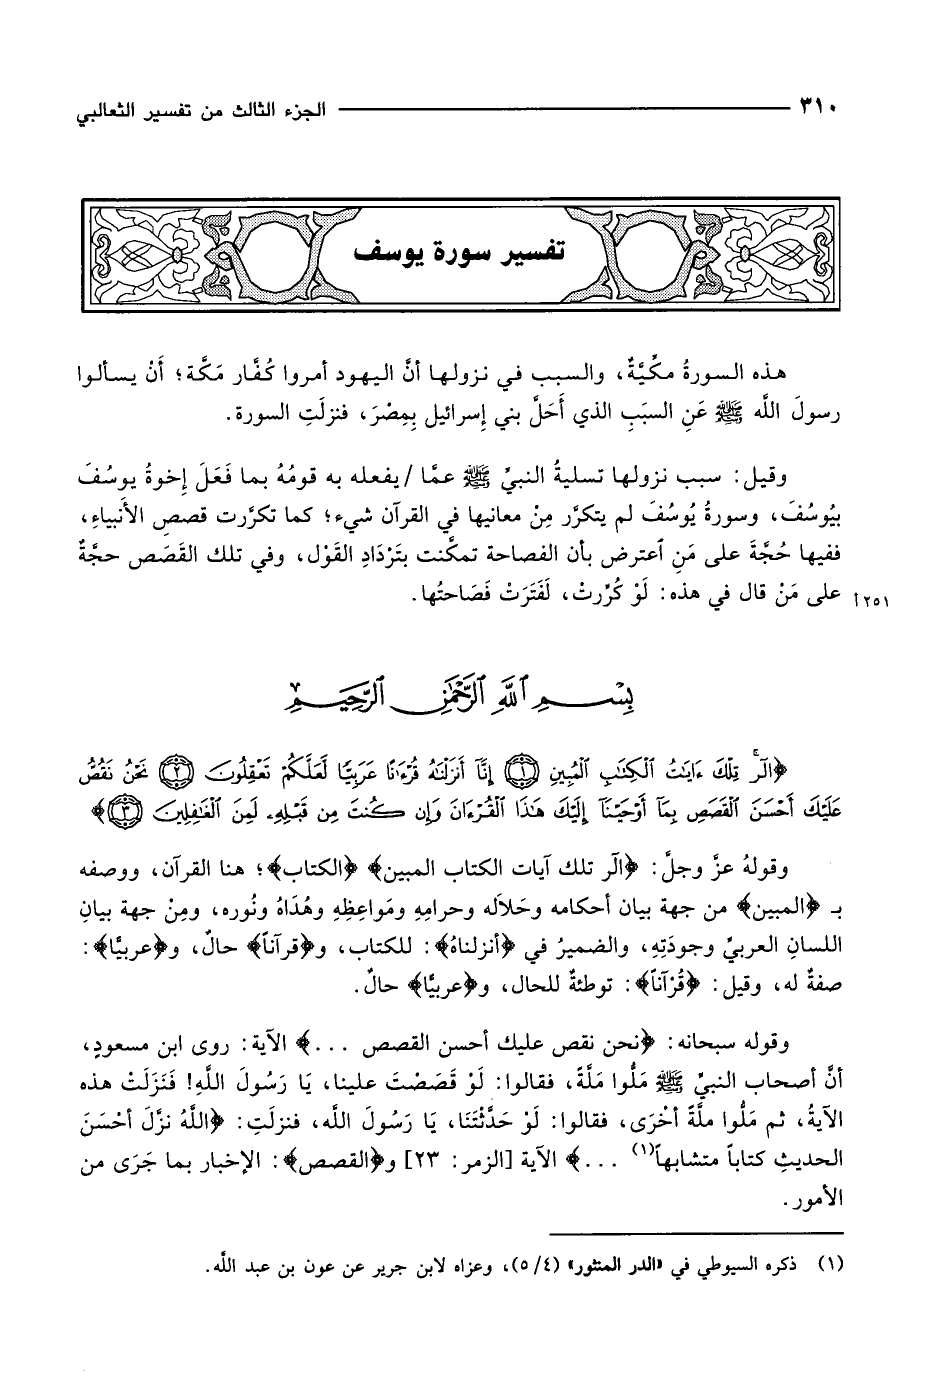 ٣١٠ الجزء الثالث من تفسير الثعالبي
تفسير سورة يوسف
هذه السورةُ مكِّيَّةٌ، والسبب في نزولها أنَّ اليهود أمروا كُفَّار مَكَّة؛ أَنْ يسألوا
رسولَ اللَّه ﷺ عَنِ السبَبِ الذي أَحَلَّ بني إِسرائيل بِمِصْرَ، فنزلَتِ السورة.
وقيل: سبب نزولها تسليةُ النبيِّ ﷺ عمَّا /يفعله به قومُهُ بما فَعَلَ إِخوةُ يوسُفَ
بيُوسُفَ، وسورةُ يُوسُفَ لم يتكرَّر مِنْ معانيها في القرآن شيء؛ كما تكرَّرت قصص الأنبياءِ،
ففيها حُجَّةَ على مَنِ ٱعترض بأن الفصاحة تمكَّنت بتَرْدَادِ القَوْل، وفي تلك القَصَص حجَّةٌ
على مَنْ قال في هذه: لَوْ كُرِّرتْ، لَفَتَرَتْ فَصَاحتُها. ٢٥١أ
بِسْمِ ٱللَّهِ ٱلرَّحْمَٰنِ ٱلرَّحِيمِ
﴿الٓرۚ تِلْكَ ءَايَٰتُ ٱلْكِتَٰبِ ٱلْمُبِينِ ۝١ إِنَّآ أَنزَلْنَٰهُ قُرْءَٰنًا عَرَبِيًّا لَّعَلَّكُمْ تَعْقِلُونَ ۝٢ نَحْنُ نَقُصُّ
عَلَيْكَ أَحْسَنَ ٱلْقَصَصِ بِمَآ أَوْحَيْنَآ إِلَيْكَ هَٰذَا ٱلْقُرْءَانَ وَإِن كُنتَ مِن قَبْلِهِۦ لَمِنَ ٱلْغَٰفِلِينَ ۝٣﴾
وقولهُ عزَّ وجلَّ: ﴿الۤر تلك آيات الكتاب المبين﴾ ﴿الكتاب﴾؛ هنا القرآن، ووصفه
بـ ﴿المبين﴾ من جهة بيان أحكامه وحَلاَله وحرامِهِ ومَواعِظِهِ وهُدَاهُ ونُوره، ومِنْ جهة بيانِ
اللسانِ العربيِّ وجودَتِهِ، والضميرُ في ﴿أنزلناهُ﴾: للكتاب، و﴿قرآناً﴾ حالٌ، و﴿عربيًّا﴾:
صفةٌ له، وقيل: ﴿قُرْآناً﴾: توطئةٌ للحال، و﴿عربيًّا﴾ حالٌ.
وقوله سبحانه: ﴿نحن نقص عليك أحسن القصص ...﴾ الآية: روى ابن مسعودٍ،
أنَّ أصحاب النبيِّ ﷺ مَلُّوا مَلَّةً، فقالوا: لَوْ قَصَصْتَ علينا، يَا رَسُولَ اللَّهِ! فَنَزَلَتْ هذه
الآيةُ، ثم مَلُّوا ملَّةً أخْرَى، فقالوا: لَوْ حَدَّثْتَنَا، يَا رَسُولَ اللَّه، فنزلَتِ: ﴿اللَّهُ نزَّلَ أحْسَنَ
الحديثِ كتاباً متشابهاً(١) ...﴾ الآية [الزمر: ٢٣] و﴿القصص﴾: الإخبار بما جَرَى من
الأمور.
(١) ذكره السيوطي في «الدر المنثور» (٤/ ٥)، وعزاه لابن جرير عن عون بن عبد اللَّه.